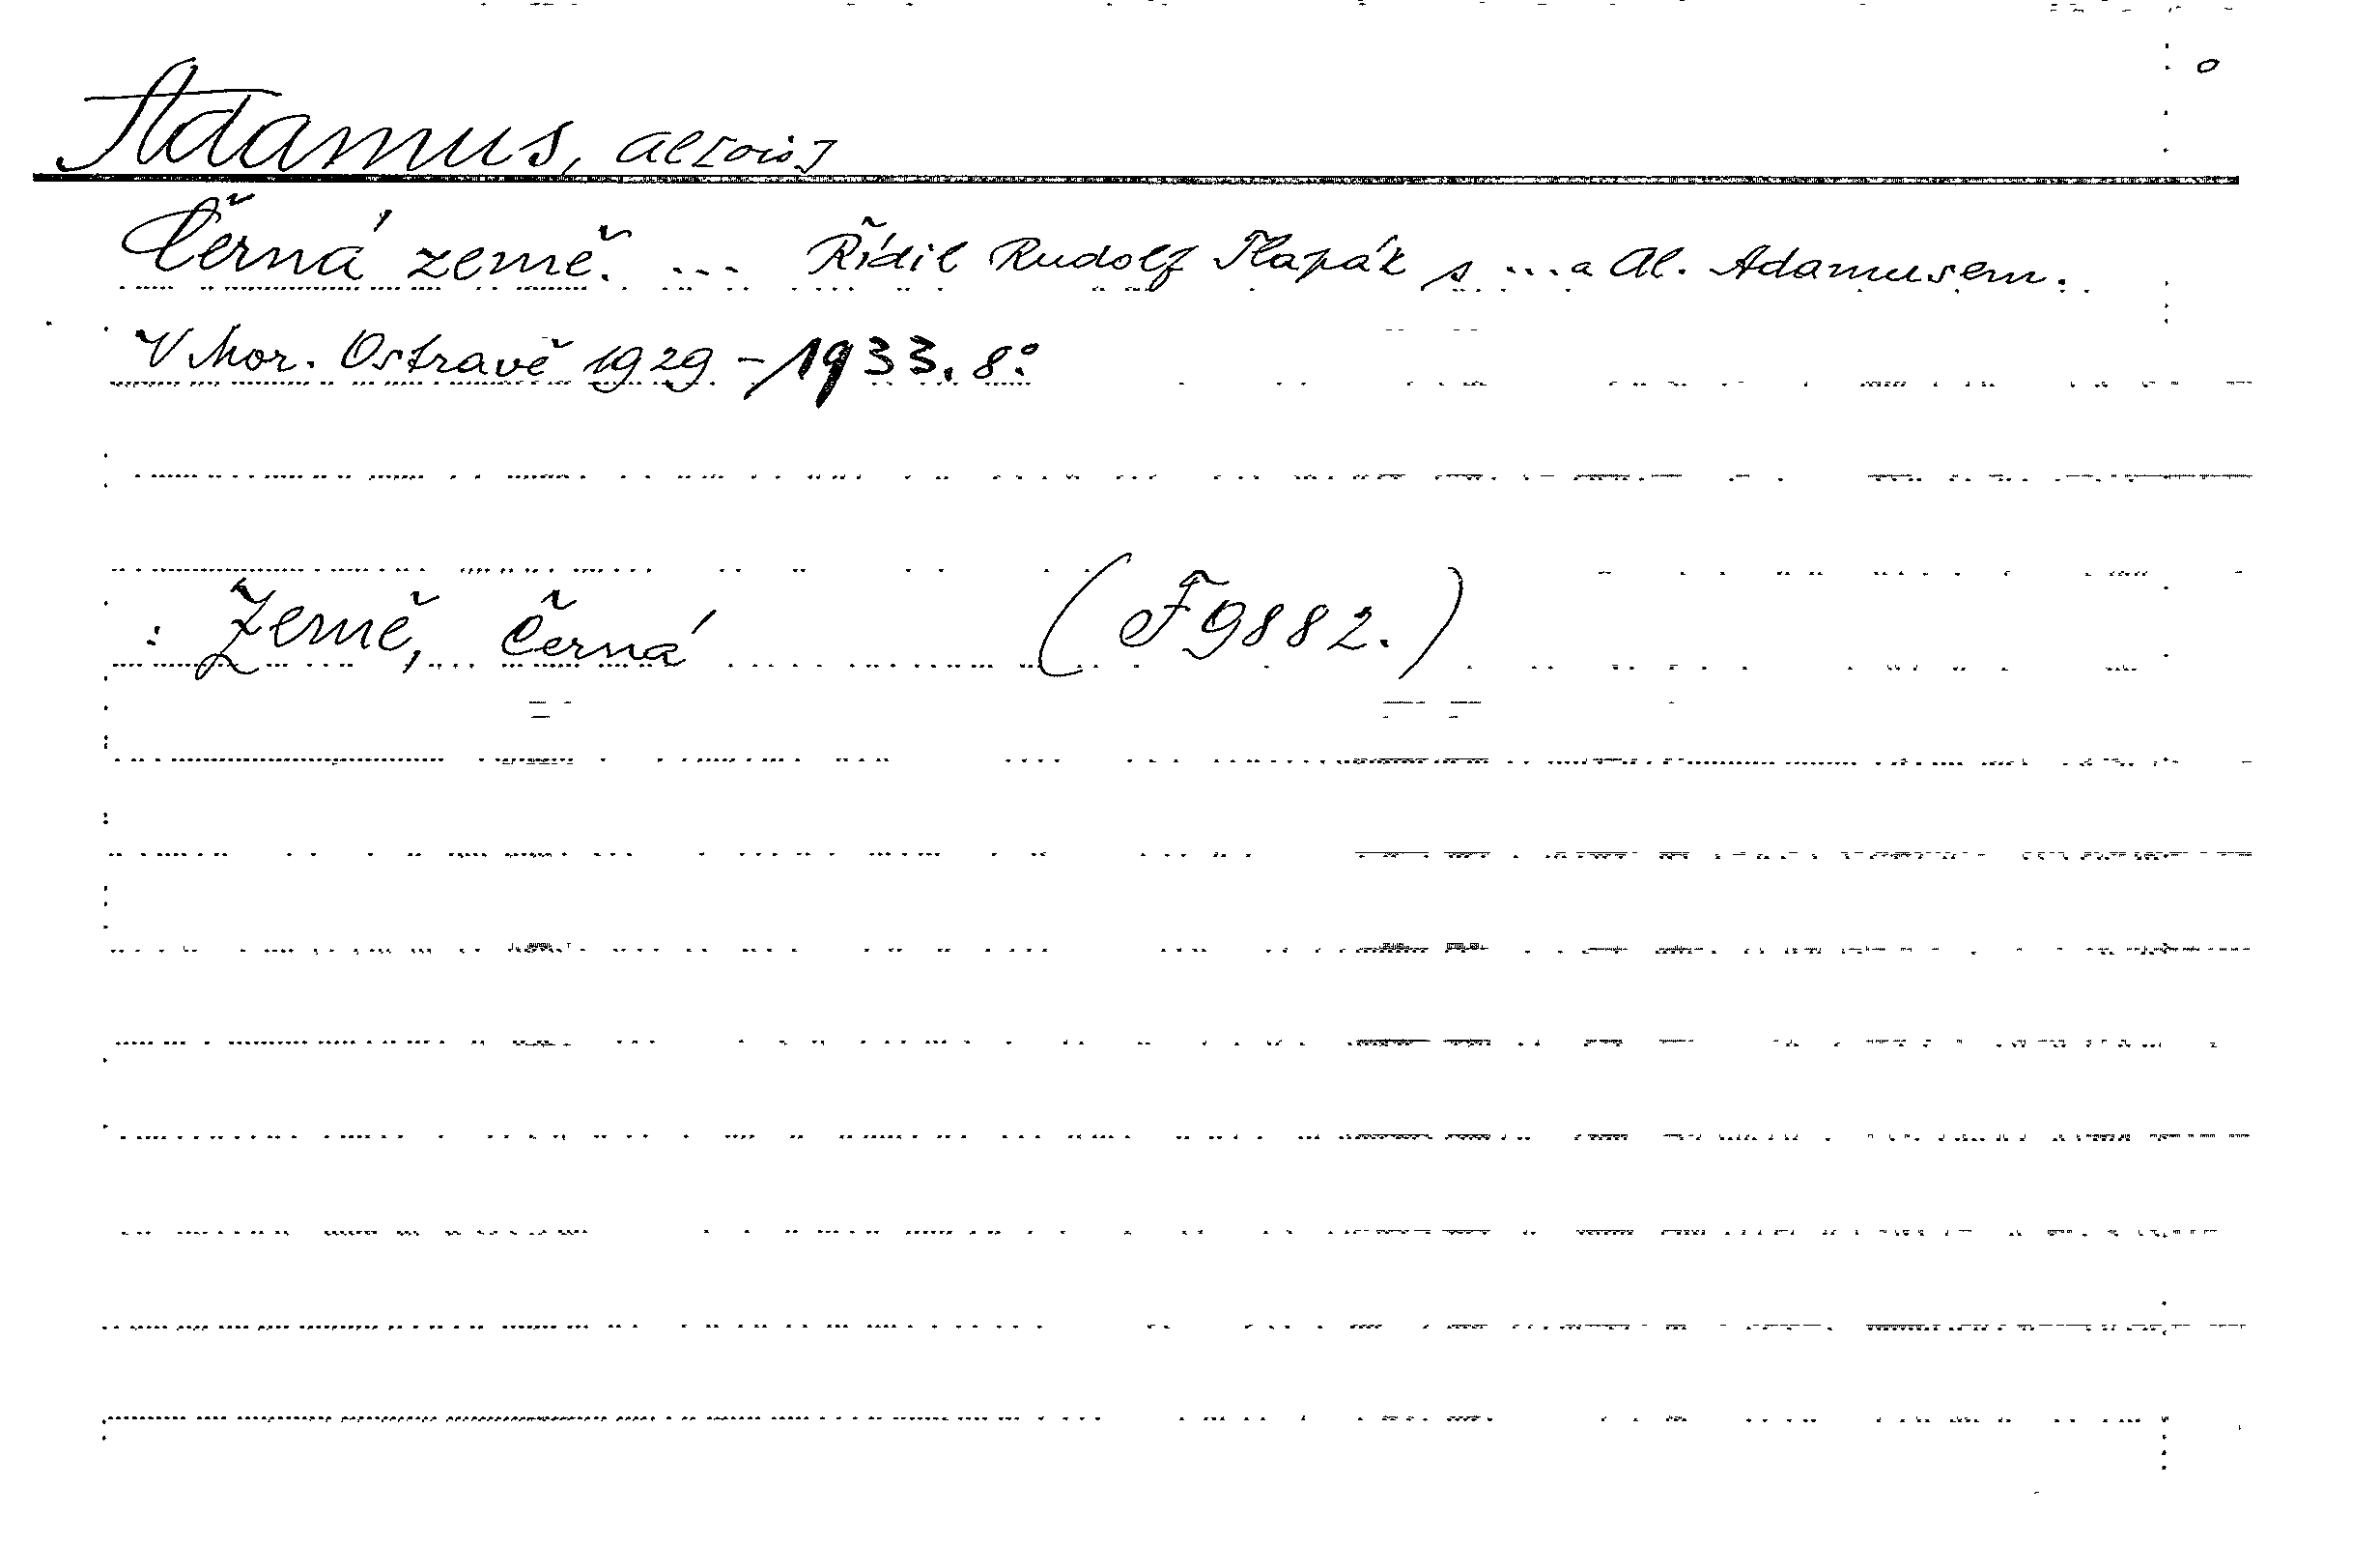 Adamus, Al[ois]
Černá země. ... Řídil Rudolf Tlapák s ... a Al. Adamusem.
V Mor. Ostravě 1929 - 1933. 8°.
: Země, Černá (F 9882.)